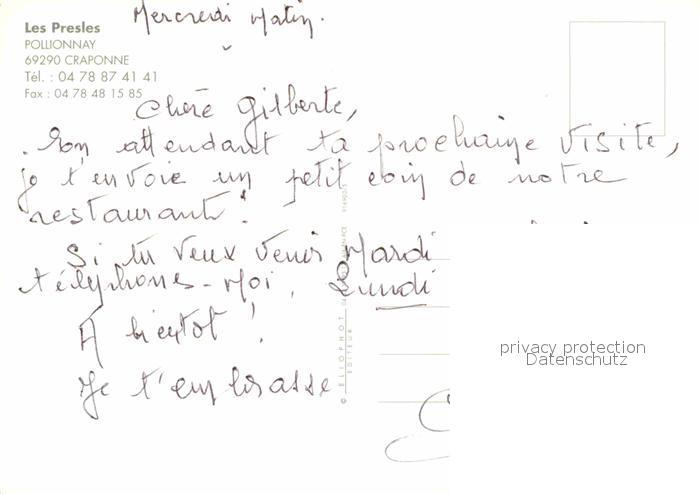 Mercredi Matin.
Les Presles
POLLIONNAY
69290 CRAPONNE
Tél. : 04 78 87 41 41
Fax : 04 78 48 15 85
Chère Gilberte,
En attendant ta prochaine visite,
je t'envoie un petit coin de notre
restaurant !
Si tu veux venir Mardi
téléphones-Moi, Lundi
A bientot !
Je t'embrasse
© ELIOPHOT
EDITEUR
privacy protection
Datenschutz